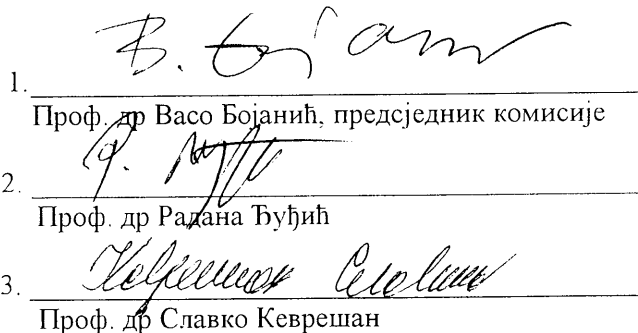 1.
Проф. др Васо Бојанић, предсједник комисије
2.
Проф. др Радана Ђуђић
Кеврешан Славко
3.
Проф. др Славко Кеврешан